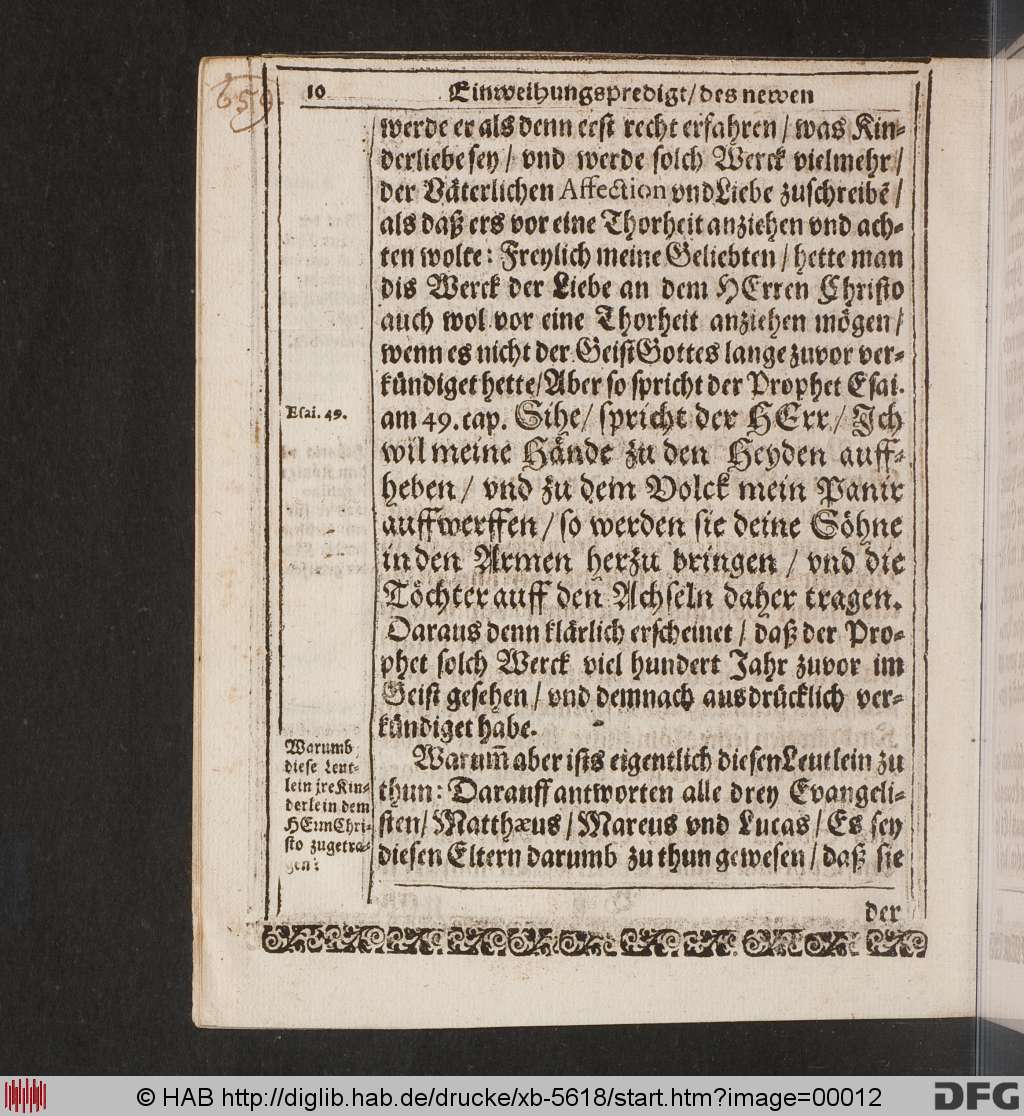 659.
10 Einweihungspredigt/ des newen
werde er als denn erst recht erfahren / was Kin-
derliebe sey / vnd werde solch Werck vielmehr /
der Väterlichen Affection vnd Liebe zuschreibē /
als daß ers vor eine Thorheit anziehen vnd ach-
ten wolte: Freylich meine Geliebten / hette man
dis Werck der Liebe an dem HErren Christo
auch wol vor eine Thorheit anziehen mögen /
wenn es nicht der Geist Gottes lange zuvor ver-
kündiget hette/ Aber so spricht der Prophet Esai.
Esai. 49.
am 49. cap. Sihe/ spricht der HErr/ Ich
wil meine Hände zu den Heyden auff-
heben / vnd zu dem Volck mein Panir
auffwerffen / so werden sie deine Söhne
in den Armen herzu bringen / vnd die
Töchter auff den Achseln daher tragen.
Daraus denn klärlich erscheinet / daß der Pro-
phet solch Werck viel hundert Jahr zuvor im
Geist gesehen / vnd demnach ausdrücklich ver-
kündiget habe.
Warumb
diese Leut-
lein jre Kin-
derlein dem
HErrn Chri-
sto zugetra-
gen?
Warum̃ aber ists eigentlich diesen Leutlein zu
thun: Darauff antworten alle drey Evangeli-
sten/ Matthæus / Marcus vnd Lucas / Es sey
diesen Eltern darumb zu thun gewesen / daß sie
der
© HAB http://diglib.hab.de/drucke/xb-5618/start.htm?image=00012
DFG